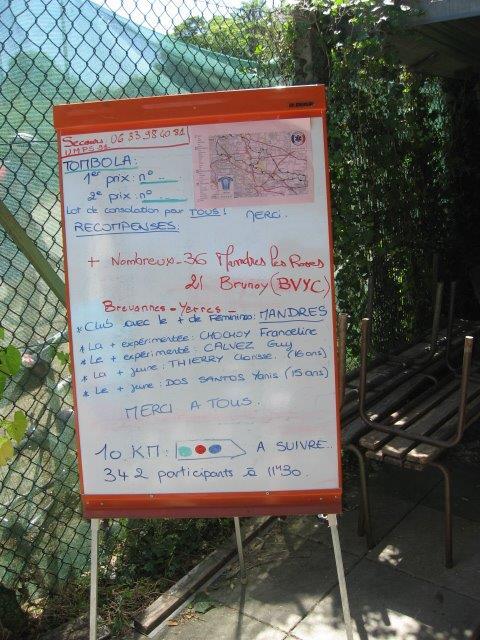 Secours 06 33 98 40 81
UMPS 91
TOMBOLA:
1er prix: n°
2e prix: n°
Lot de consolation pour TOUS! MERCI.
RECOMPENSES:
+ Nombreux - 36 Mandres les Roses
21 Brunoy (BVYC)
Brevannes - Yerres -
* Club avec le + de Féminines: MANDRES
* La + expérimentée: CHOCHOY Franceline
* Le + expérimenté: CALVEZ Guy
* La + jeune: THIERRY Clarisse. (16 ans)
* Le + jeune: DOS SANTOS Yanis (15 ans)
MERCI A TOUS.
10 KM: A SUIVRE..
342 participants à 11H30.